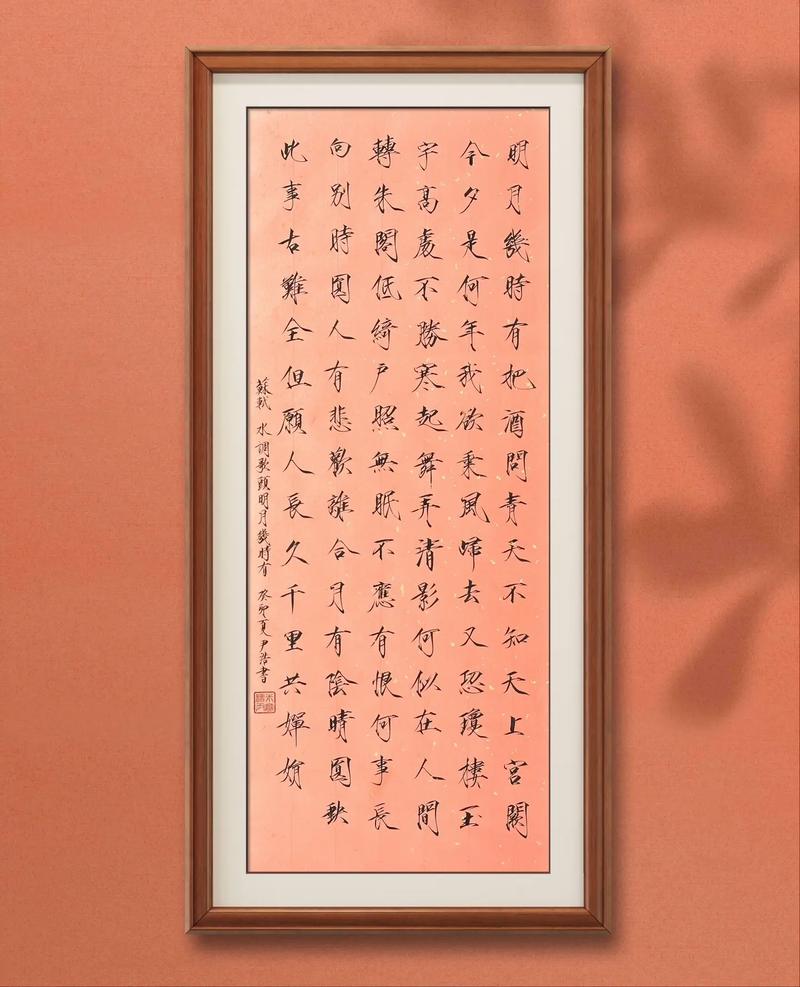 明月幾時有把酒問青天不知天上宮闕
今夕是何年我欲乘風歸去又恐瓊樓玉
宇高處不勝寒起舞弄清影何似在人間
轉朱閣低綺戶照無眠不應有恨何事長
向別時圓人有悲歡離合月有陰晴圓缺
此事古難全但願人長久千里共嬋娟
蘇軾 水調歌頭明月幾時有 癸卯夏尹浩書